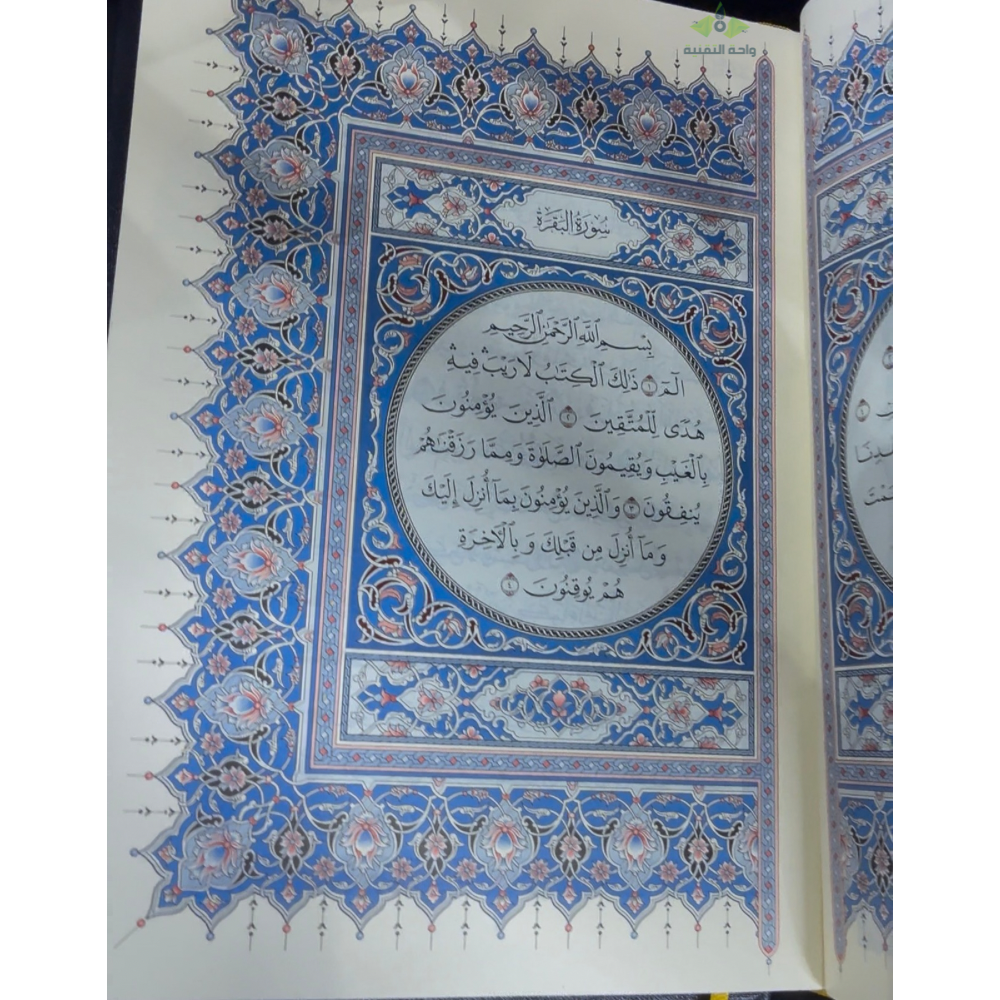 واحة التقنية
سُورَةُ الْبَقَرَةِ
بِسْمِ ٱللَّهِ ٱلرَّحْمَٰنِ ٱلرَّحِيمِ
الٓمٓ ١ ذَٰلِكَ ٱلْكِتَٰبُ لَا رَيْبَ ۛ فِيهِ ۛ
هُدًى لِّلْمُتَّقِينَ ٢ ٱلَّذِينَ يُؤْمِنُونَ
بِٱلْغَيْبِ وَيُقِيمُونَ ٱلصَّلَوٰةَ وَمِمَّا رَزَقْنَٰهُمْ
يُنفِقُونَ ٣ وَٱلَّذِينَ يُؤْمِنُونَ بِمَآ أُنزِلَ إِلَيْكَ
وَمَآ أُنزِلَ مِن قَبْلِكَ وَبِٱلْأَخِرَةِ
هُمْ يُوقِنُونَ ٤